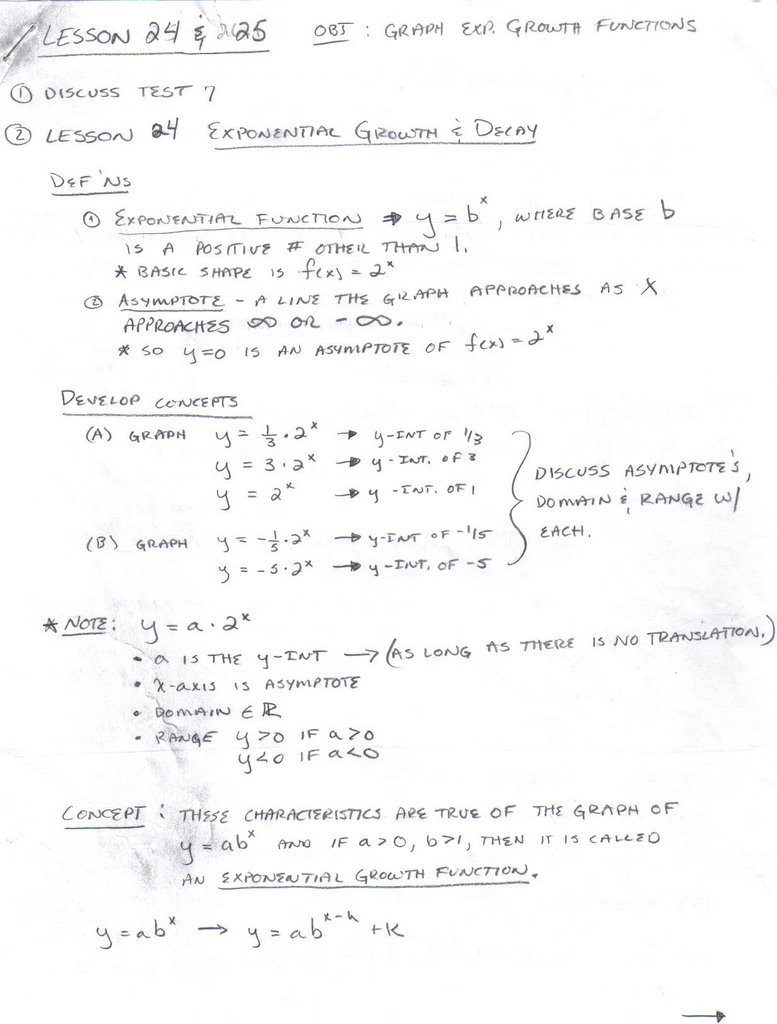 LESSON 24 & 25 OBJ : GRAPH EXP. GROWTH FUNCTIONS
① DISCUSS TEST 7
② LESSON 24 EXPONENTIAL GROWTH & DECAY
DEF'NS
① EXPONENTIAL FUNCTION → y = b^x, WHERE BASE b
IS A POSITIVE # OTHER THAN 1.
* BASIC SHAPE IS f(x) = 2^x
② ASYMPTOTE - A LINE THE GRAPH APPROACHES AS X
APPROACHES ∞ OR - ∞.
* SO y=0 IS AN ASYMPTOTE OF f(x) = 2^x
DEVELOP CONCEPTS
(A) GRAPH y = 1/3 · 2^x → y-INT OF 1/3
y = 3 · 2^x → y-INT. OF 3
y = 2^x → y-INT. OF 1
(B) GRAPH y = -1/5 · 2^x → y-INT OF -1/5
y = -5 · 2^x → y-INT. OF -5
DISCUSS ASYMPTOTE'S,
DOMAIN & RANGE W/
EACH.
* NOTE: y = a · 2^x
• a IS THE y-INT → (AS LONG AS THERE IS NO TRANSLATION.)
• X-AXIS IS ASYMPTOTE
• DOMAIN ∈ ℝ
• RANGE y>0 IF a>0
y<0 IF a<0
CONCEPT : THESE CHARACTERISTICS ARE TRUE OF THE GRAPH OF
y = ab^x AND IF a>0, b>1, THEN IT IS CALLED
AN EXPONENTIAL GROWTH FUNCTION.
y = ab^x → y = ab^(x-h) + K
→